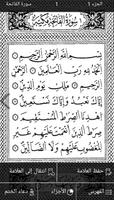 سورة الفاتحة
1
الجزء ١
سُورَةُ الفَاتِحَةِ مَكِّيَّة
بِسْمِ اللَّهِ الرَّحْمَٰنِ الرَّحِيمِ
الْحَمْدُ لِلَّهِ رَبِّ الْعَالَمِينَ
الرَّحْمَٰنِ الرَّحِيمِ
مَالِكِ يَوْمِ الدِّينِ
إِيَّاكَ نَعْبُدُ وَإِيَّاكَ نَسْتَعِينُ
اهْدِنَا الصِّرَاطَ الْمُسْتَقِيمَ
صِرَاطَ الَّذِينَ أَنْعَمْتَ عَلَيْهِمْ
غَيْرِ الْمَغْضُوبِ عَلَيْهِمْ وَلَا الضَّالِّينَ
حفظ العلامة
انتقال إلى العلامة
الفهرس
الأجزاء
دعاء الختم